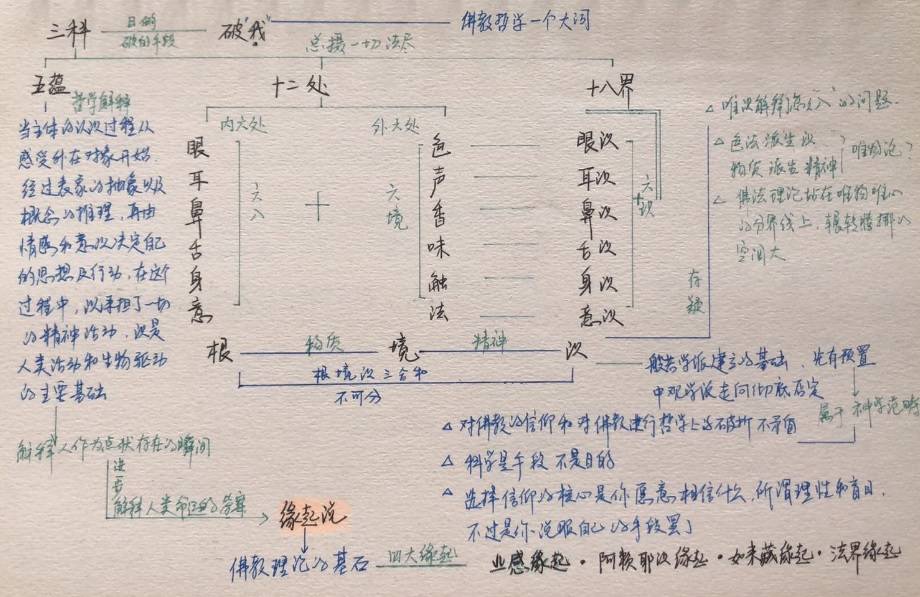 三科
目的
破的手段
破"我"
佛教哲学一个大词
总摄一切法尽
五蕴
哲学解释
十二处
十八界
当主体的认识过程从
感受外在对象开始.
经过表象的抽象以及
概念的推理，再由
情感和意识决定自己
的思想及行动，在这个
过程中，识承担了一切
的精神活动，识是
人类活动和生物驱动
的主要基础
内六处
外六处
眼
耳
鼻
舌
身
意
六入
十
六境
色
声
香
味
触
法
眼识
耳识
鼻识
舌识
身识
意识
六识
根
物质
境
精神
识
根境识三合和
不可分
存疑
唯识解释
的问题.
色法派生识
物质派生精神
唯物论?
佛法理论站在唯物唯心
的分界线上，辗转腾挪的
空间大
般若学派建立的基础
先有预置
中观学派走向彻底否定
属于神学范畴
对佛教的信仰和对佛教进行哲学上的破析不矛盾
科学是手段 不是目的
选择信仰的核心是你愿意相信什么，所谓理性和盲目，
不过是你说服自己的手段罢了
解释人作为点状存在的瞬间
进一步
解释人类命运的答案
缘起说
佛教理论的基石
四大缘起
业感缘起·阿赖耶识缘起·如来藏缘起·法界缘起